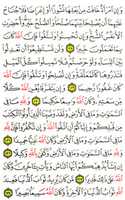 وَإِنِ امْرَأَةٌ خَافَتْ مِن بَعْلِهَا نُشُوزًا أَوْ إِعْرَاضًا فَلَا جُنَاحَ
عَلَيْهِمَا أَن يُصْلِحَا بَيْنَهُمَا صُلْحًا وَالصُّلْحُ خَيْرٌ وَأُحْضِرَتِ
الْأَنفُسُ الشُّحَّ وَإِن تُحْسِنُوا وَتَتَّقُوا فَإِنَّ اللَّهَ كَانَ
بِمَا تَعْمَلُونَ خَبِيرًا ١٢٨ وَلَن تَسْتَطِيعُوا أَن تَعْدِلُوا
بَيْنَ النِّسَاءِ وَلَوْ حَرَصْتُمْ فَلَا تَمِيلُوا كُلَّ الْمَيْلِ
فَتَذَرُوهَا كَالْمُعَلَّقَةِ وَإِن تُصْلِحُوا وَتَتَّقُوا فَإِنَّ اللَّهَ
كَانَ غَفُورًا رَّحِيمًا ١٢٩ وَإِن يَتَفَرَّقَا يُغْنِ اللَّهُ كُلًّا
مِّن سَعَتِهِ وَكَانَ اللَّهُ وَاسِعًا حَكِيمًا ١٣٠ وَلِلَّهِ مَا فِي
السَّمَاوَاتِ وَمَا فِي الْأَرْضِ وَلَقَدْ وَصَّيْنَا الَّذِينَ أُوتُوا الْكِتَابَ
مِن قَبْلِكُمْ وَإِيَّاكُمْ أَنِ اتَّقُوا اللَّهَ وَإِن تَكْفُرُوا فَإِنَّ لِلَّهِ مَا فِي
السَّمَاوَاتِ وَمَا فِي الْأَرْضِ وَكَانَ اللَّهُ غَنِيًّا حَمِيدًا ١٣١
وَلِلَّهِ مَا فِي السَّمَاوَاتِ وَمَا فِي الْأَرْضِ وَكَفَىٰ بِاللَّهِ وَكِيلًا ١٣٢
إِن يَشَأْ يُذْهِبْكُمْ أَيُّهَا النَّاسُ وَيَأْتِ بِآخَرِينَ وَكَانَ اللَّهُ
عَلَىٰ ذَٰلِكَ قَدِيرًا ١٣٣ مَّن كَانَ يُرِيدُ ثَوَابَ الدُّنْيَا فَعِندَ
اللَّهِ ثَوَابُ الدُّنْيَا وَالْآخِرَةِ وَكَانَ اللَّهُ سَمِيعًا بَصِيرًا ١٣٤